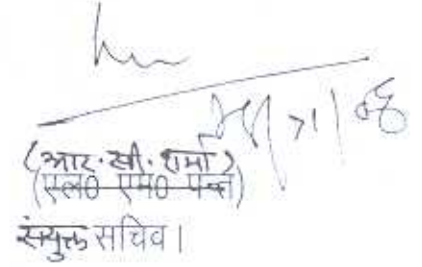 (आर. सी. शर्मा)
(एल0 एम0 पन्त)
संयुक्त सचिव।